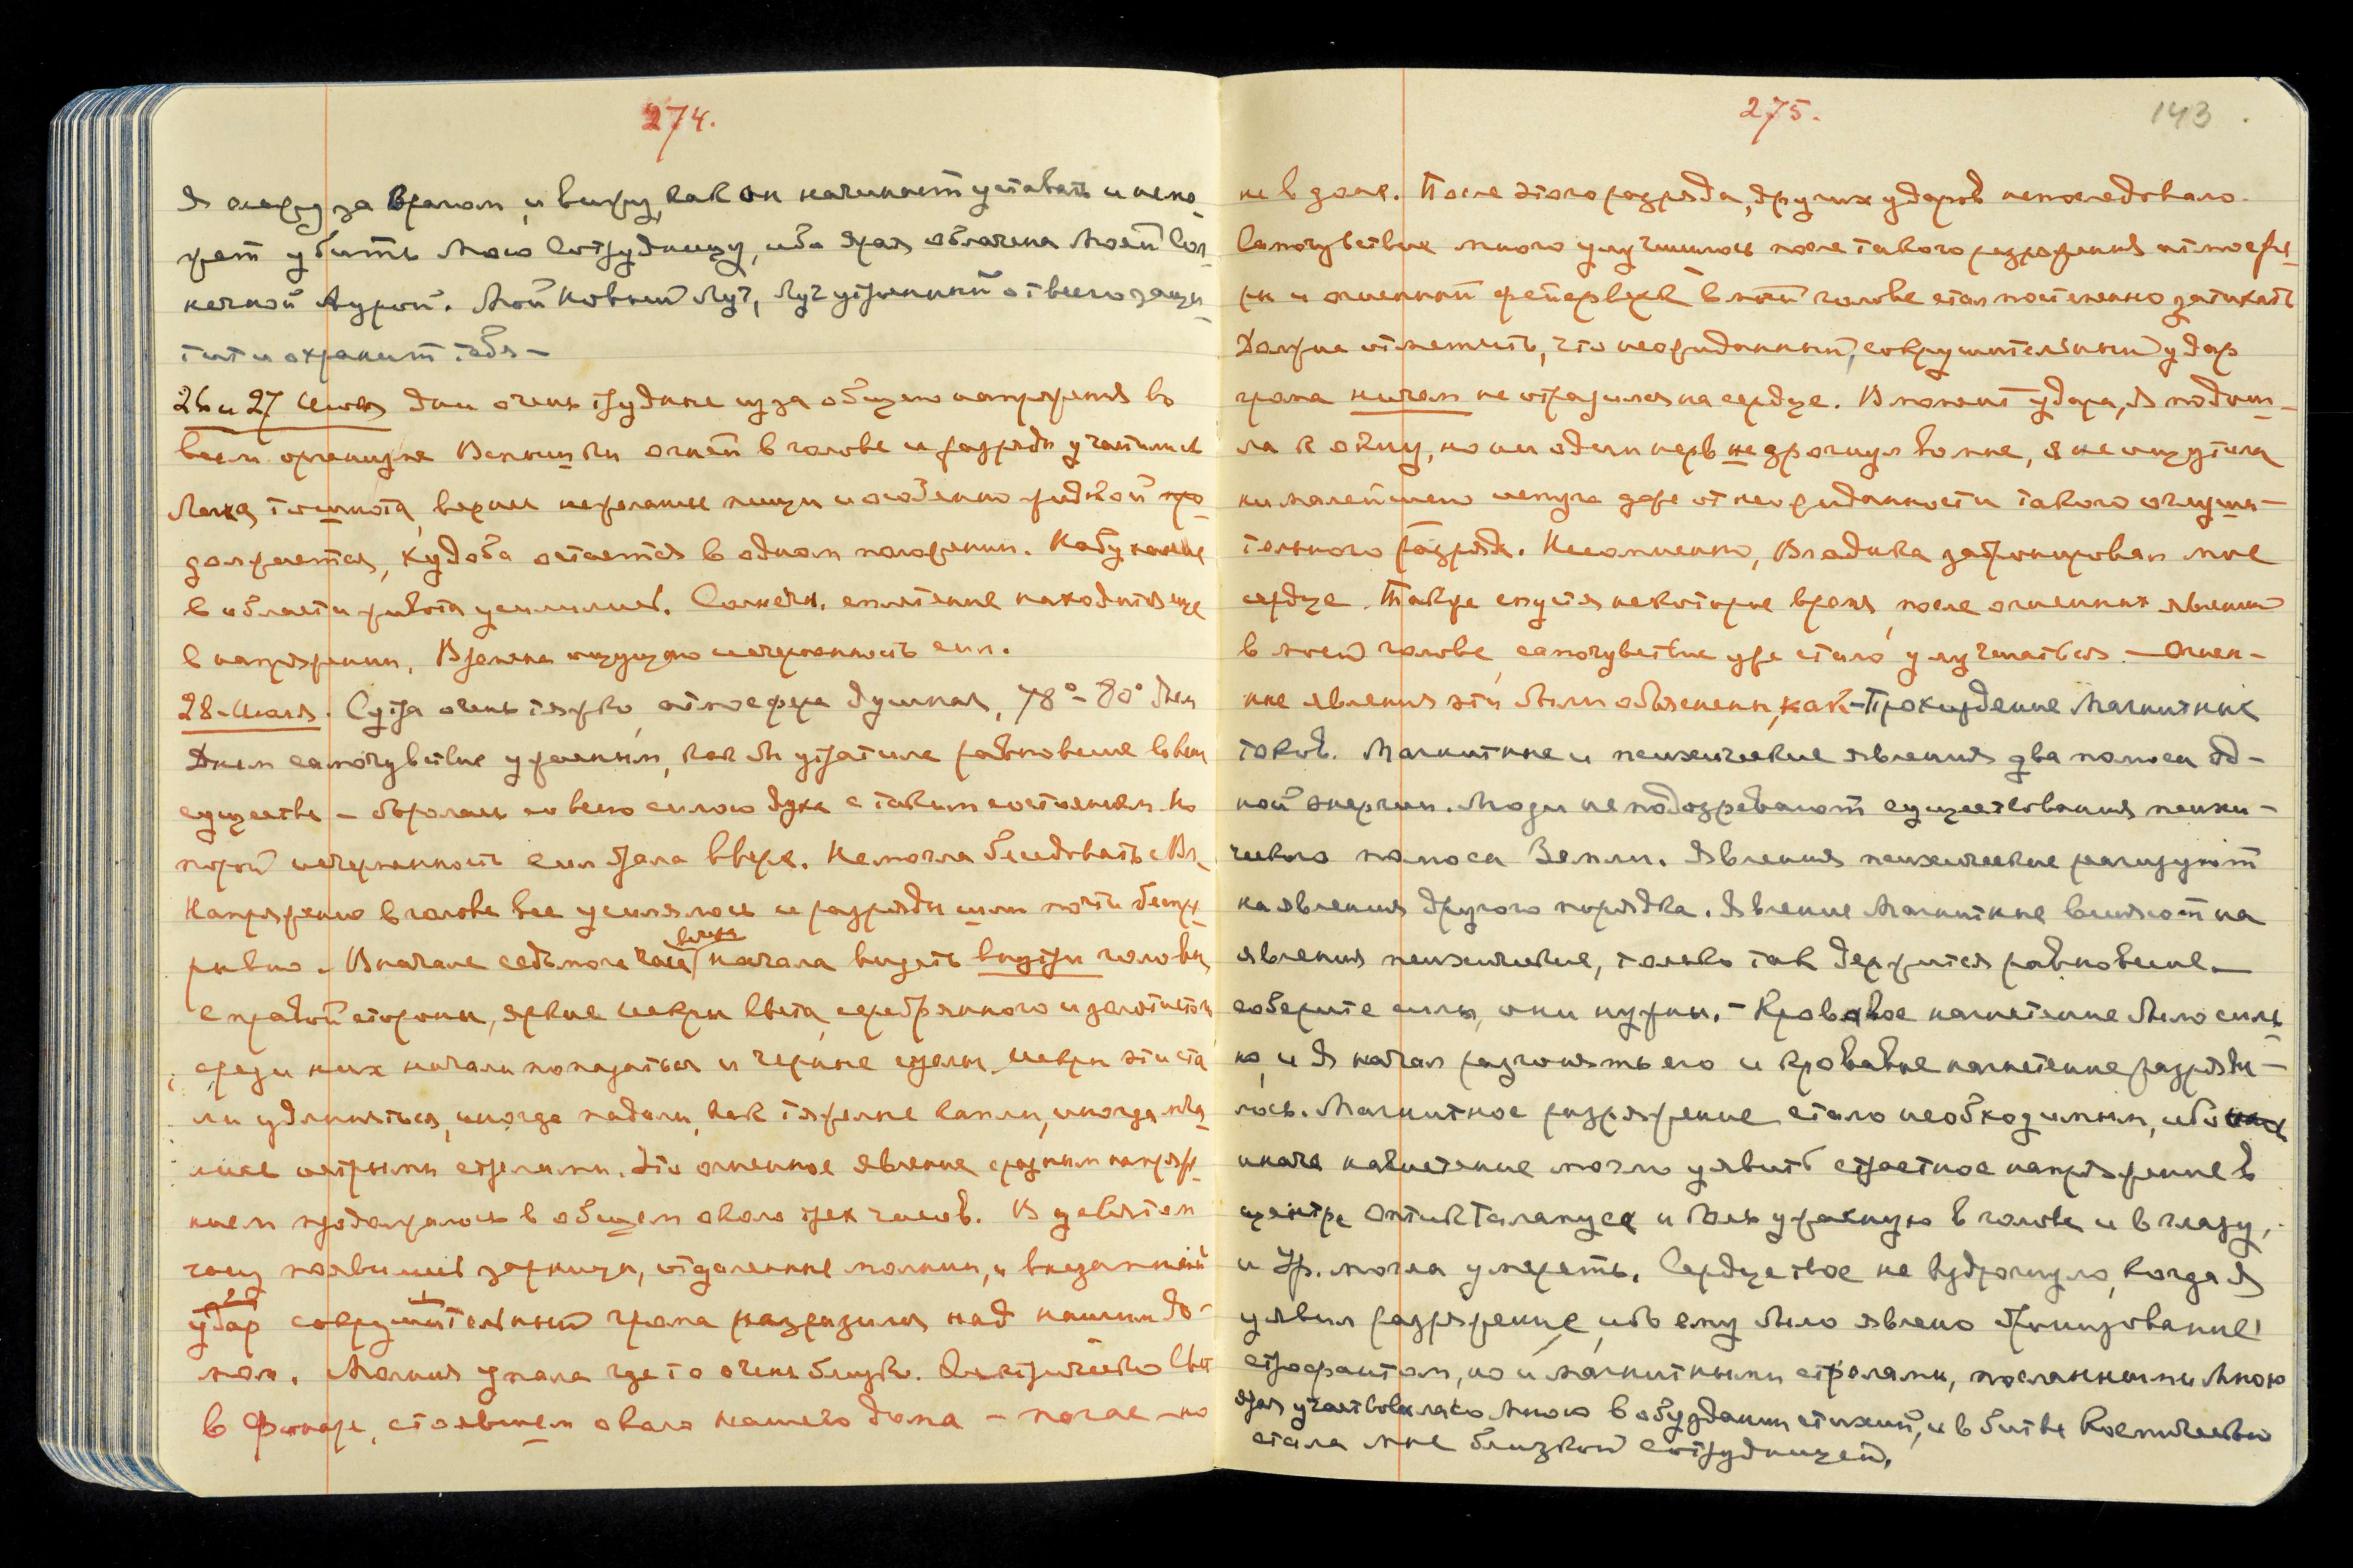 274.
Я слежу за врагом, и вижу, как он начинает уставать и не мо-
жет убить мою сотрудницу, ибо Ярая облачена Моей Сол-
нечной Аурой. Мой Новый Луч, Луч утроенный от всего защи-
тит и охранит тебя —
26 и 27 Июля Дни очень трудные из за общего напряжения во
всем организме Вспышки огней в голове и разряды участились
Легкая тошнота, вернее нежелание пищи и особенно жидкой про-
должается, худоба остается в одном положении. Набухание
в области живота усилилось. Солнечн. сплетение находится еще
в напряжении. Временами ощущаю исчерпанность сил.
28-Июля. С утра очень тяжко, атмосфера душная, 78°-80° днем
Днем самочувствие ужасным, как бы утратила равновесие во всем
существе — боролась со всею силою духа с таким состоянием. Но
порой исчерпанность сил брала вверх. Не могла беседовать с Вл.
Напряжение в голове все усилялось и разряды шли почти беспре-
рывно. Вначале седьмого часа вечера начала видеть внутри головы,
с правой стороны, яркие искры света, серебрянного и золотистого,
среди них начали попадаться и черные стрелы. Искры эти ста-
ли удлиняться, иногда падали, как тяжелые капли, иногда
острыми стрелами. Это огненное явление с разным напряже-
нием продолжалось в общем около трех часов. В девятом
часу появились зарницы, отдаленные молнии, и внезапный
удар сокрушительный грома разразился над нашим до-
мом. Молния упала где то очень близко. Электрическ. свет
в фонаре, стоявшем около нашего дома — погас — но
275.
143.
не в доме. После этого разряда, других ударов не последовало.
Самочувствие много улучшилось после такого разряжения атмосфе-
ры и огненный фейерверк в моей голове стал постепенно затихать
Должна отметить, что неожиданный, сокрушительный удар
грома ничем не отразился на сердце. В момент удара, я подош-
ла к окну, но ни один нерв не дрогнул во мне, я не ощутила
ни малейшего испуга даже от неожиданности такого оглуши-
тельного разряда. Несомненно, Владыка забронировал мне
сердце. Также спустя некоторое время, после огненных явлений
в моей голове, самочувствие уже стало улучшаться. — Огнен-
ные явления эти были объяснены, как — Прохождение Магнитных
токов. Магнитные и психические явления два полюса од-
ной энергии. Люди не подозревают существования психи-
ческого полюса Земли. Явления психические реагируют
на явления другого порядка. Явление Магнитное влияют на
явления психические, только так держится равновесие. —
соберите силы, они нужны. — Кровавое нагнетение было силь-
но, и Я начал разгонять его и кровавые нагнетение разряди-
лось. Магнитное разряжение стало необходимым, ибо
иначе нагнетение могло уявить страстное напряжение в
центре оптикталамуса и боль ужасную в голове и в глазу,
и Ур. могла умереть. Сердце твое не вздрогнуло, когда Я
уявил разряжение, ибо ему было явлено бронирование
строфантом, но и магнитными стрелами, посланными Мною
Ярая участвовала со Мною в обуздании стихий, и в битве Космической
стала мне близкой сотрудницей.